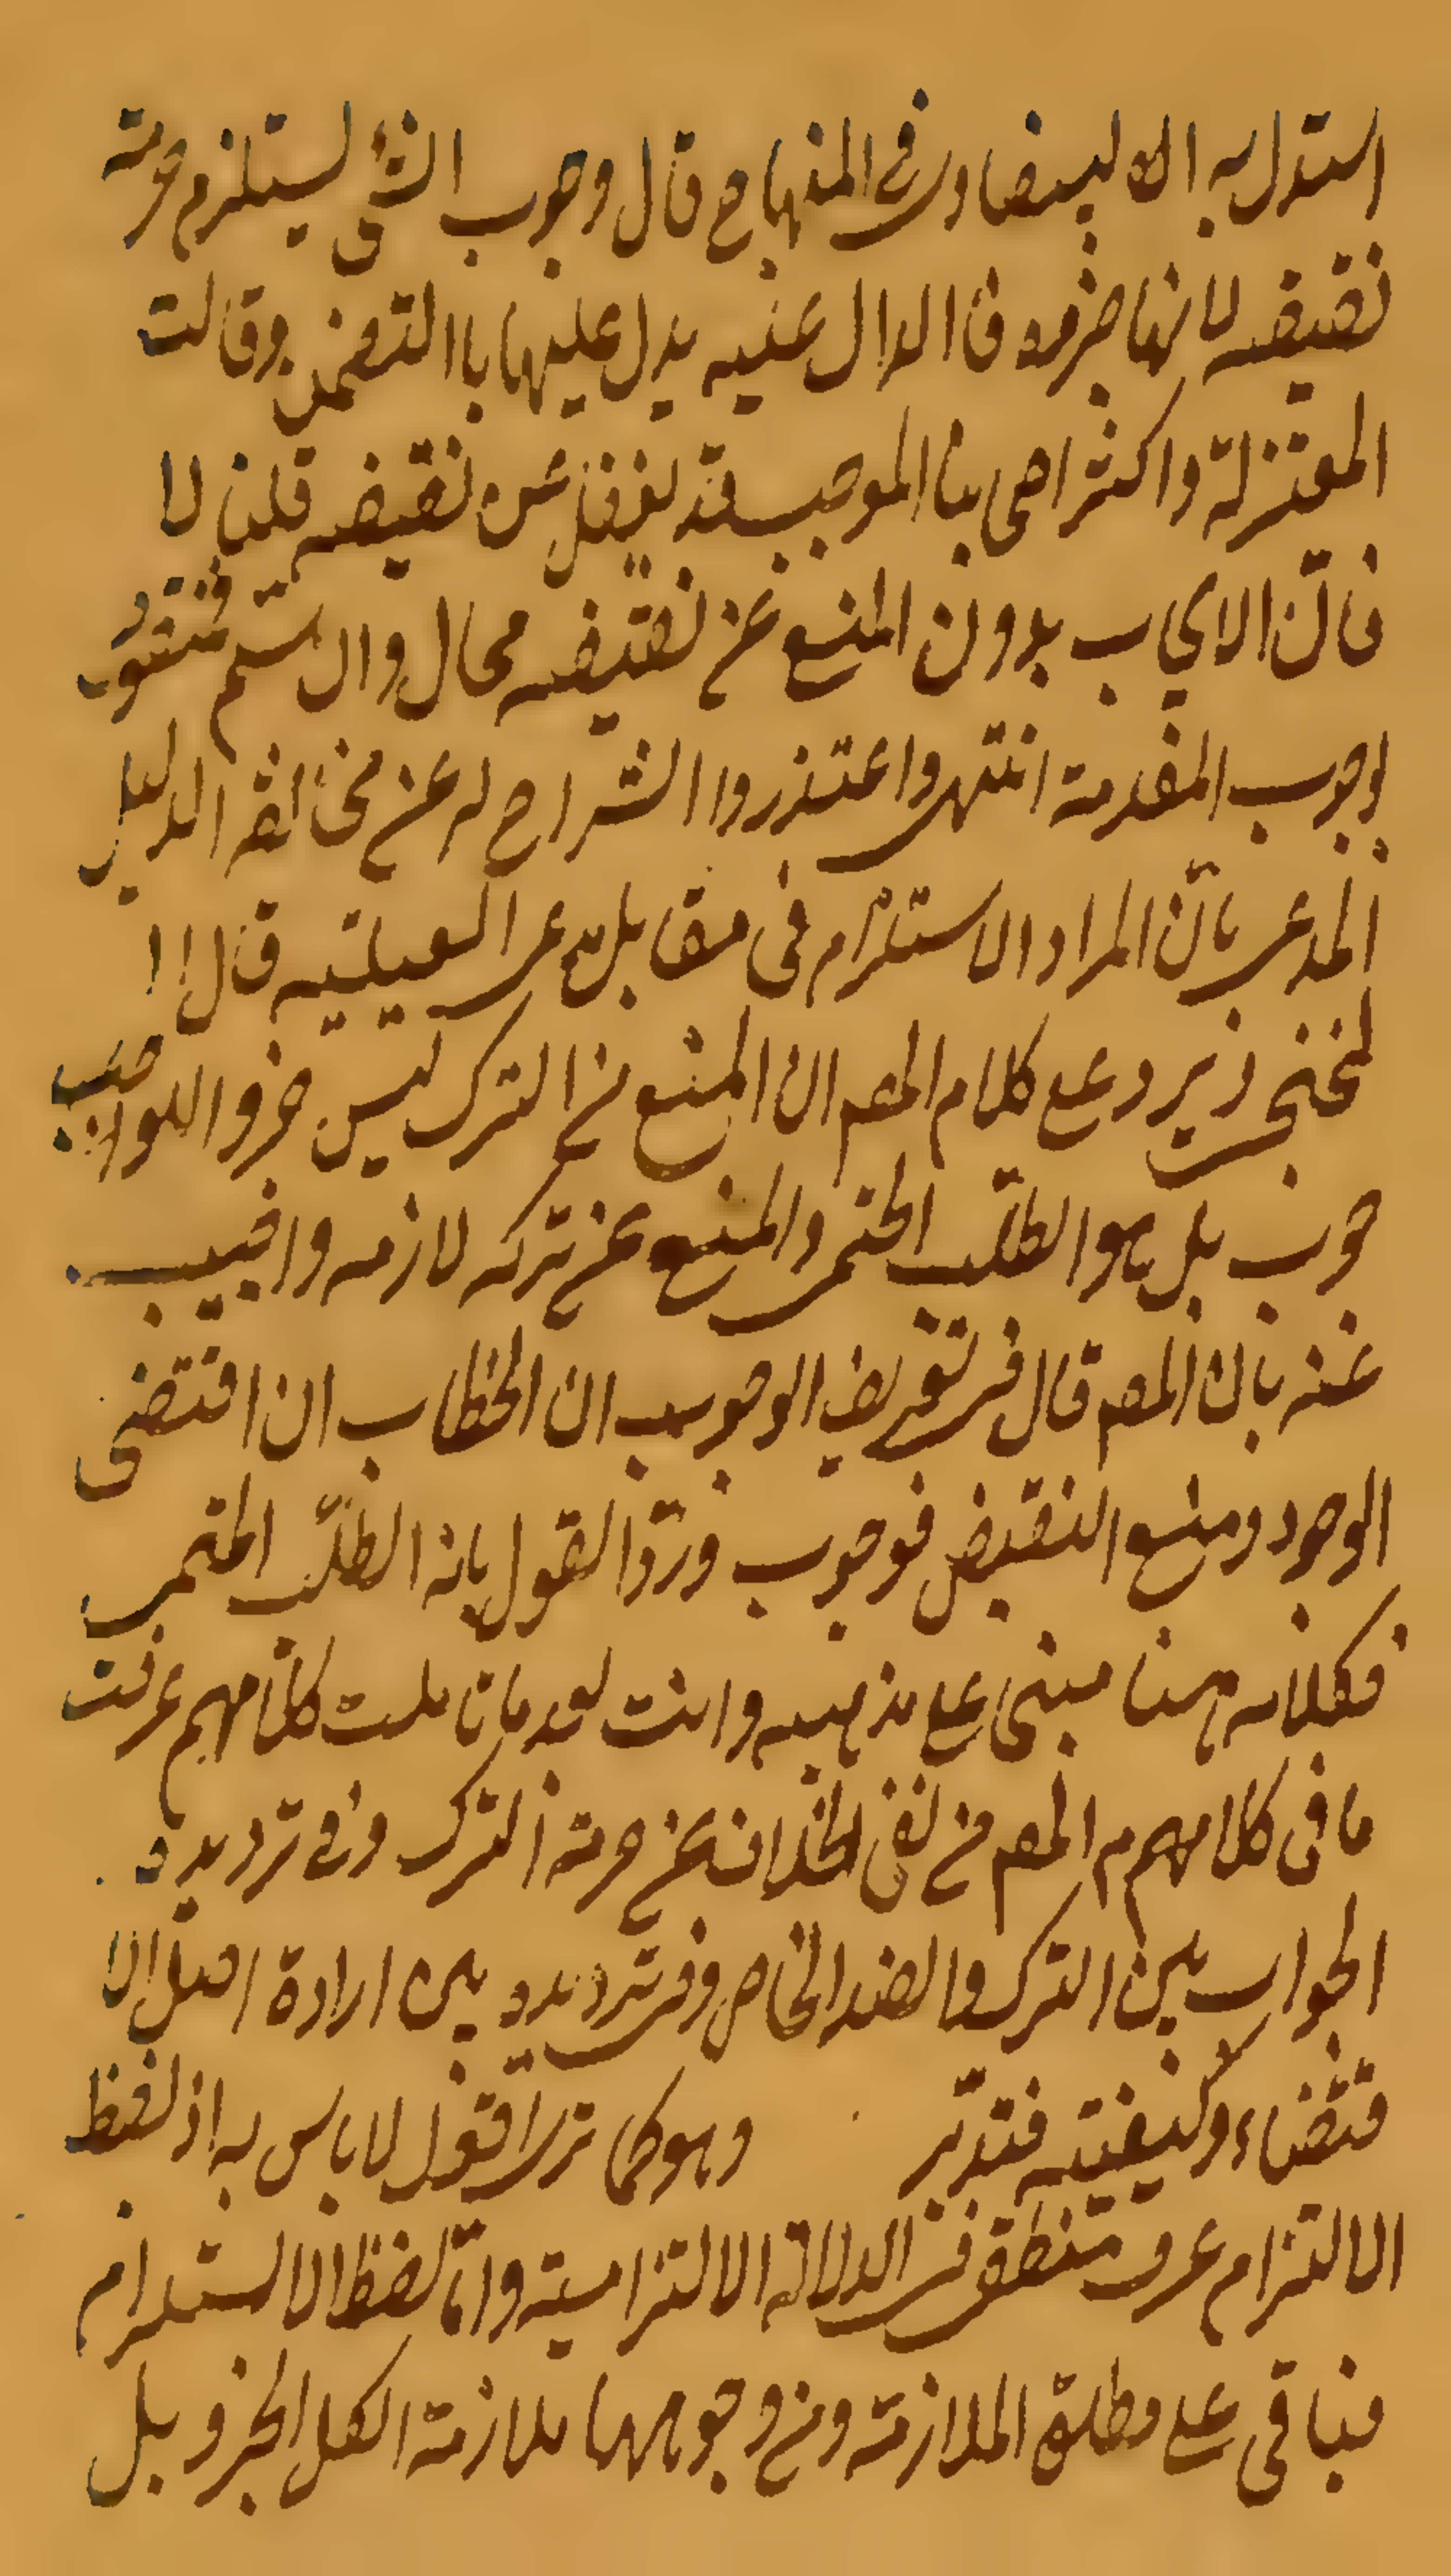 استدل به الا لبيضاوى فى المنهاج قال وجوب الشئ ليستلزم حرمته
نقيضه لانها جزءه فا الدال عنيه يدل عليها باالتضمن وقالت
المعتزلة واكثر اصحابنا الموجب قد يغفل عن نقيضه قلنا لا
فانّ الايجاب بدون المنع عن نقيضه محال وان سلّم فمنقوض
بوجوب المقدمة انتهى واعتذروا الشراح له عن مخالفة الدليل
المدعى بانّ المراد الاستلزام فى مقابل مدعى العينيه قال ا
لخنجى يرد على كلام المص ان المنع من الترك ليس جزو الو
جوب بل هو الطلّب الحتمى والمنع عن تركه لازمه واجيب
عنه بان المص قال فى تعريف الوجوب ان الخطاب ان اقتضى
الوجود ومنع النقيض فوجوب وردّ القول بانه الطلّب الحتمى
فكلامه هنا مبنى على مذهبه وانت بعد ما تاملت كلامهم عرفت
ما فى كلامهم م المص من نفى الخلاف عن حرمة الترك وفى ترديده
الجواب بين الترك والضد الخاص وفى ترديده بين ارادة اصل الا
قتضاء وكيفيته فتدبّر وهو كما ترى اقول لا باس به اذ لفظ
الالتزام عرف منطقى فى الدلالة الالتزامية وامّا لفظ الاستلزام
فباقى على مطلق الملازمة ومن وجوهها ملازمة الكل الجزو بل